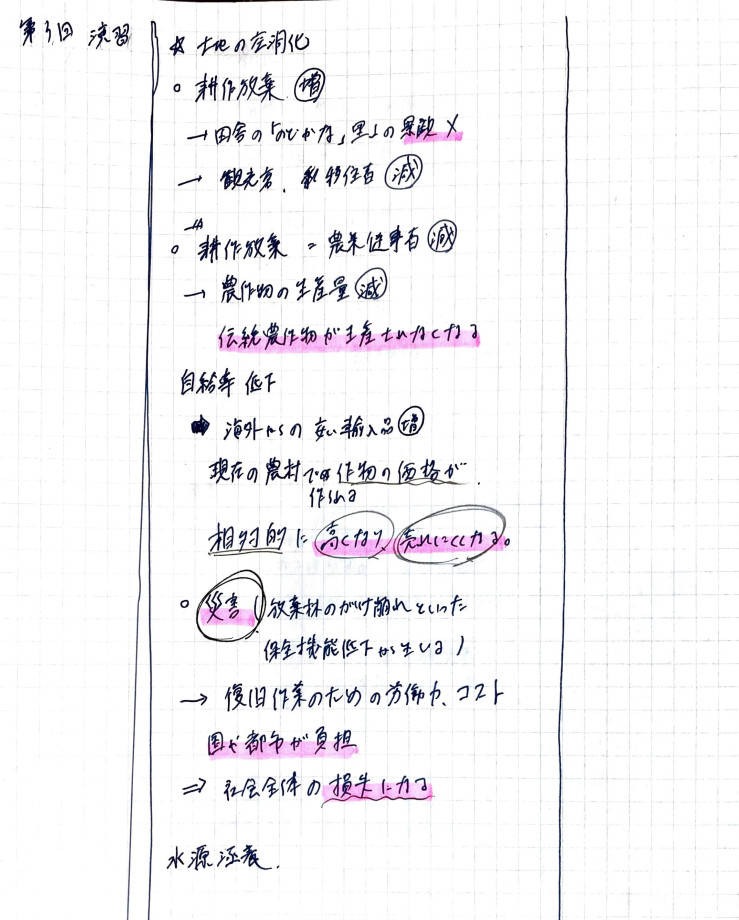 第3回 演習
☆ 土地の空洞化
○ 耕作放棄 増
→ 田舎の「のどかな」里」の景観 ×
→ 観光客、移住者 減
○ 耕作放棄 = 農業従事者 減
→ 農作物の生産量 減
伝統農作物が生産されなくなる
自給率 低下
➡ 海外からの安い輸入品 増
現在の農村で作られる作物の価格が
相対的に高くなり、売れにくくなる。
○ 災害(放棄林のがけ崩れといった
保全機能低下から生じる)
→ 復旧作業のための労働力、コスト
国や都市が負担
⇒ 社会全体の損失になる
水源涵養.